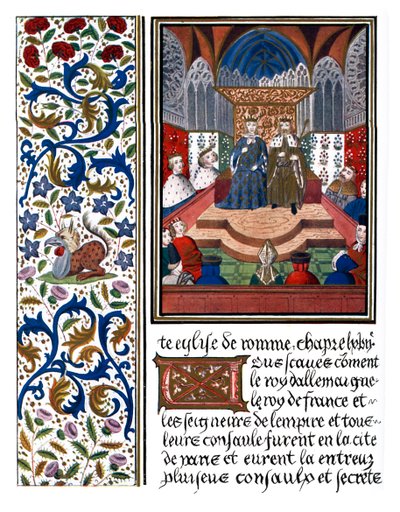 te eglise de romme. Chapre lxxiiij
Vous scaves coment
le roy dallemaigne
le roy de france et
les seigneurs de lempire et tous
leurs consaulx furent en la cite
et eurent la entreux
pluiseus consaulx et secrete